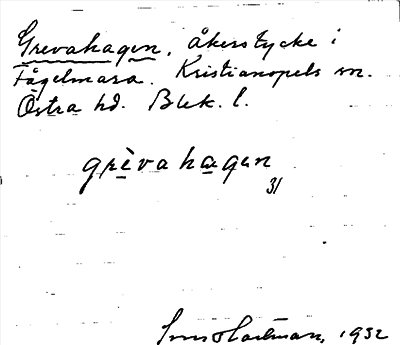 Grevahagen, åkersstycke i
Fågelmara. Kristianopels sn.
Östra hd. Blek. l.
grèvahagen
31
Hartman, 1932